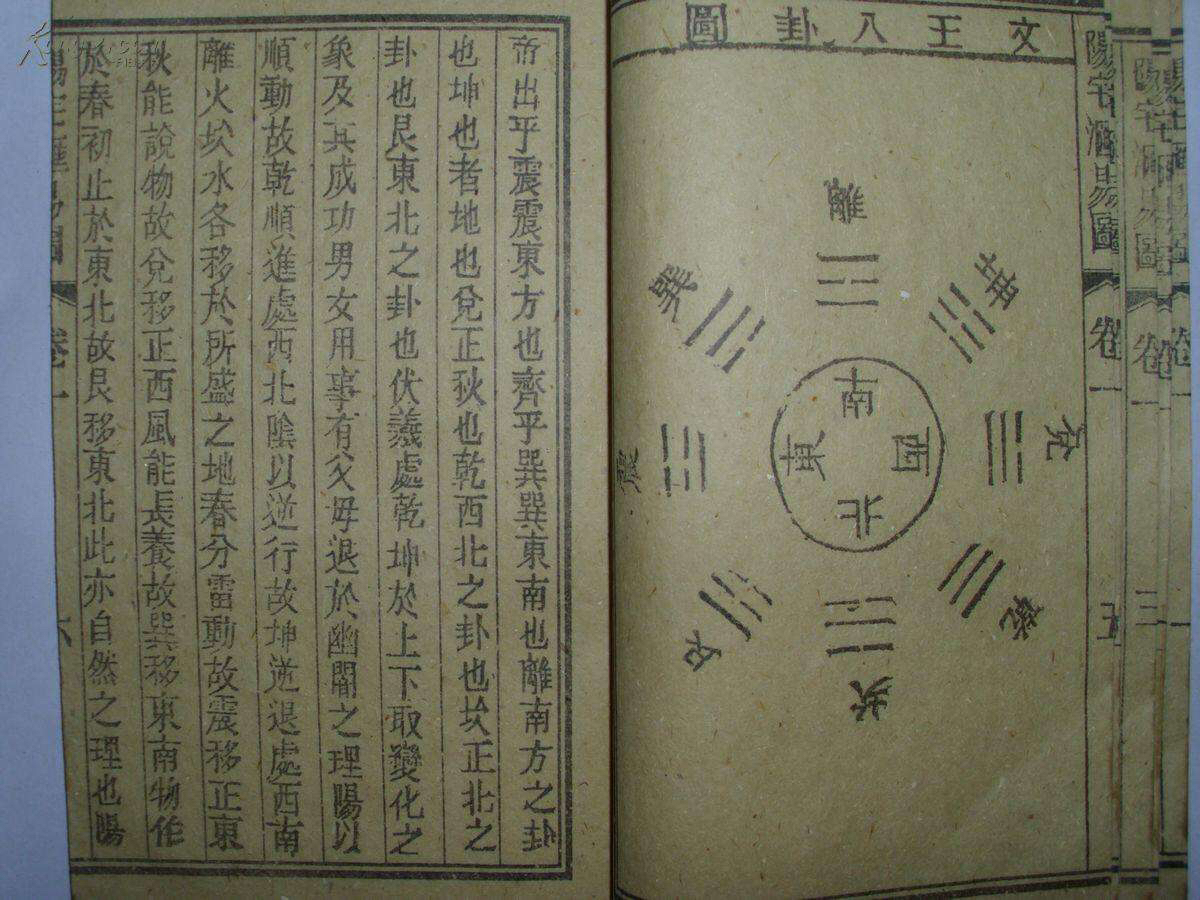 陽宅滙易圖 卷一 三
陽宅滙易圖 卷一 五
文王八卦圖
離
坤
兌
乾
坎
艮
震
巽
南
西
北
東
帝出乎震震東方也齊乎巽巽東南也離南方之卦
也坤也者地也兌正秋也乾西北之卦也坎正北之
卦也艮東北之卦也伏羲處乾坤於上下取變化之
象及其成功男女用事有父母退於幽閒之理陽以
順動故乾順進處西北陰以逆行故坤逆退處西南
離火坎水各移於所盛之地春分雷動故震移正東
秋能說物故兌移正西風能長養故巽移東南物作
於春初止於東北故艮移東北此亦自然之理也陽
陽宅滙易圖 卷一 六